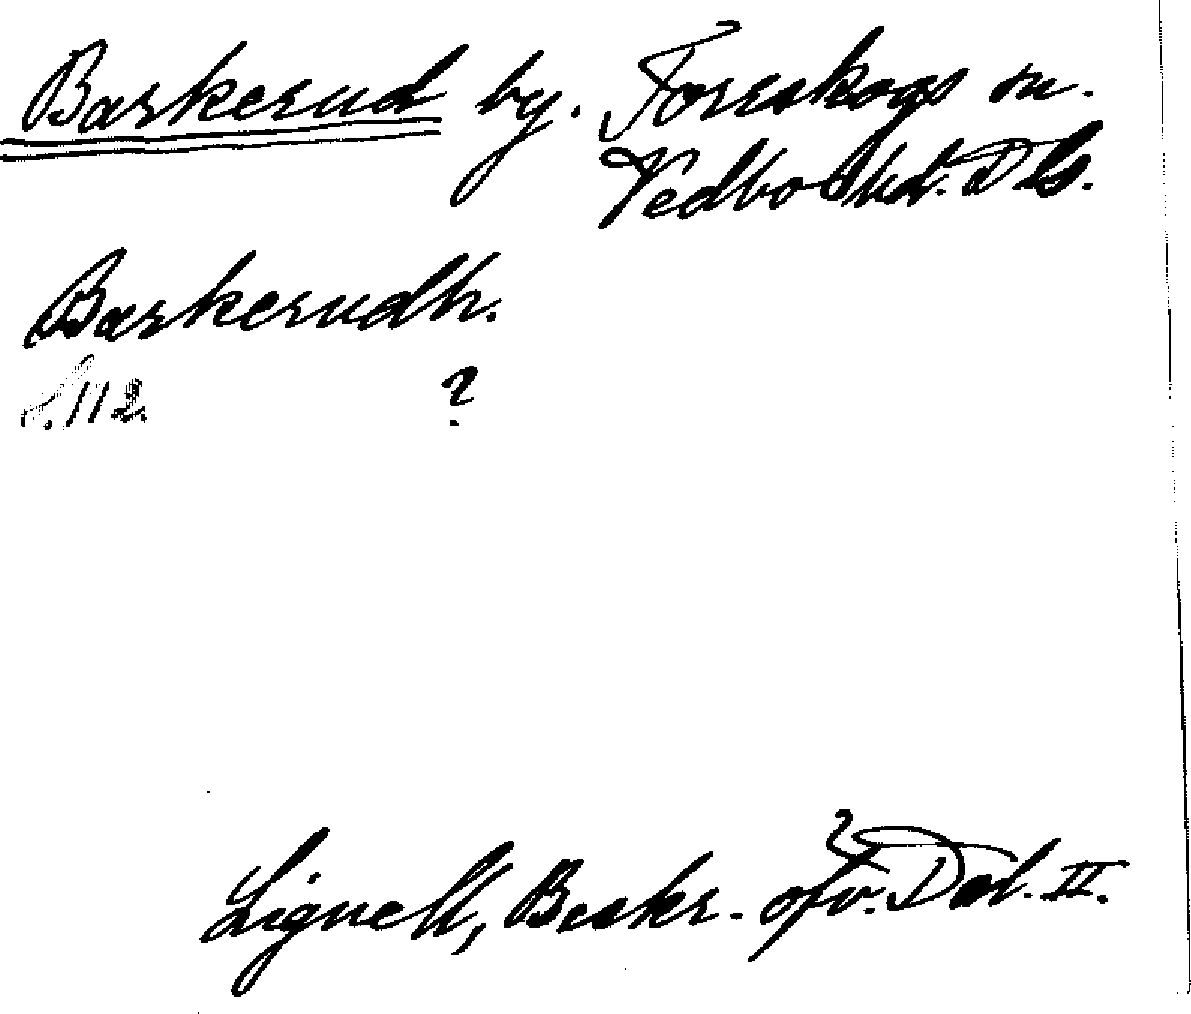 Barkerud by. Torrskogs sn.
Vedbo hd. Dls.
Barkerudh.
s. 112. ?
Lignell, Beskr. ofv. Dal. II.